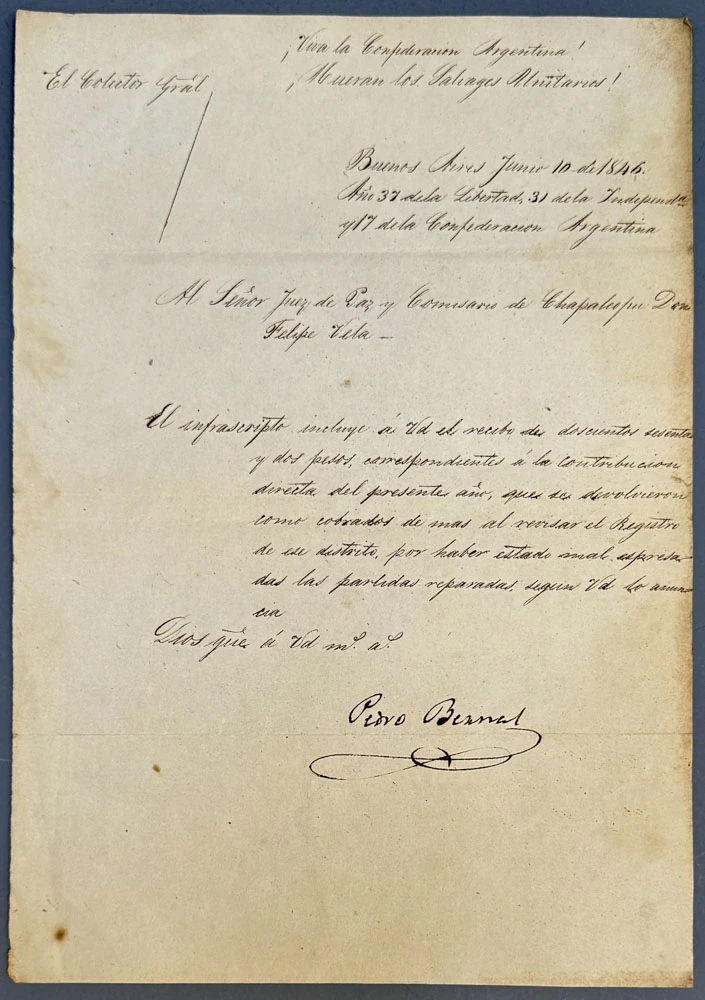 ¡Viva la Confederacion Argentina!
El Colector Grāl
¡Mueran los Salvages Unitarios!
Buenos Aires Junio 10 de 1846.
Año 37 de la Libertad, 31 de la Independa
y 17 de la Confederacion Argentina
Al Señor Juez de Paz y Comisario de Chapaleofu Don
Felipe Vela _
El infrascripto incluye á Vd el recibo de doscientos sesenta
y dos pesos, correspondientes á la Contribucion
directa del presente año, que se devolvieron
como cobrados de mas al revisar el Registro
de ese distrito, por haber estado mal espresa-
das las partidas reparadas, segun Vd lo anun-
cia
Dios gūe á Vd ms. as.
Pedro Bernal